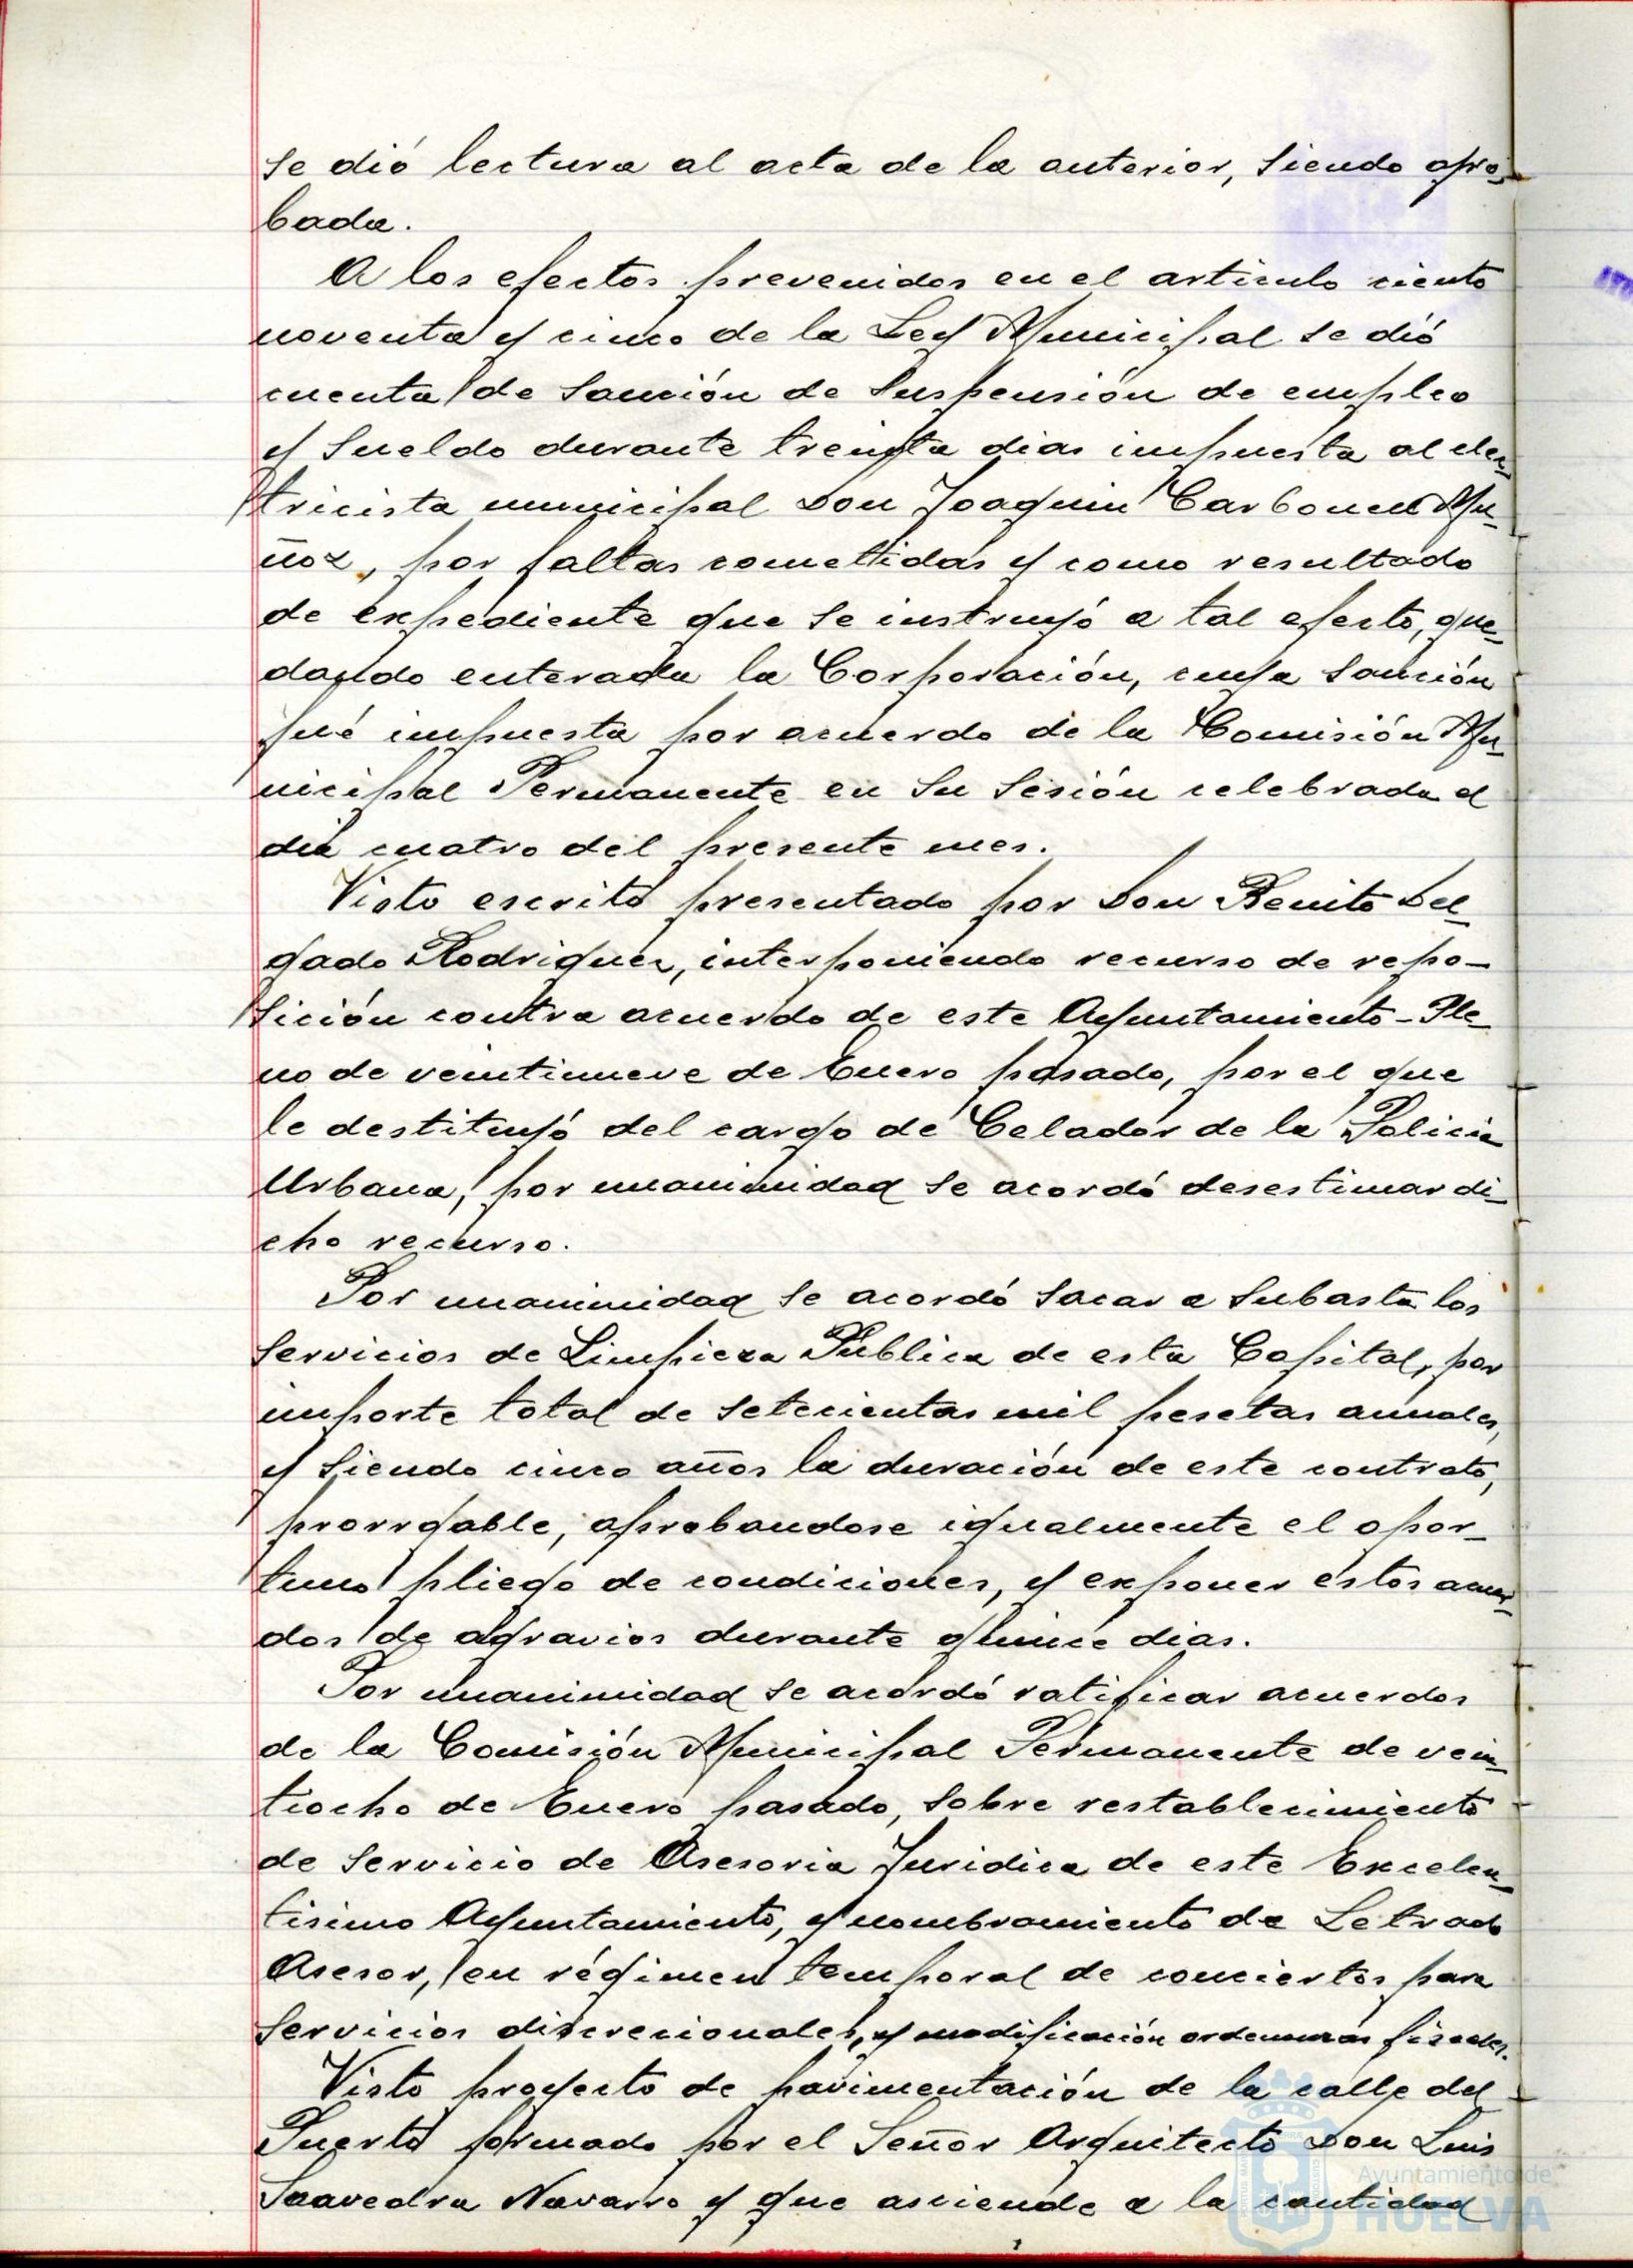 se dió lectura al acta de la anterior, siendo apro-
bada.
A los efectos prevenidos en el articulo ciento
noventa y cinco de la Ley Municipal se dió
cuenta de sanción de suspensión de empleo
y sueldo durante treinta dias impuesta al elec-
tricista municipal Don Joaquin Carbonell Mu-
ñoz, por faltas comettidas y como resultado
de expediente que se instruyó a tal efecto, que-
dando enterada la Corporación, cuya sanción
fué impuesta por acuerdo de la Comisión Mu-
nicipal Permanente en su sesión celebrada el
dia cuatro del presente mes.
Visto escrito presentado por Don Benito Del-
gado Rodriguez, interponiendo recurso de repo-
sición contra acuerdo de este Ayuntamiento-Ple-
no de veintinueve de Enero pasado, por el que
le destituyó del cargo de Celador de la Policia
Urbana, por unanimidad se acordó desestimar di-
cho recurso.
Por unanimidad se acordó sacar a subasta los
servicios de Limpieza Pública de esta Capital, por
importe total de setecientas mil pesetas anuales,
y siendo cinco años la duración de este contrato,
prorrgable, aprobandose igualmente el opor-
tuno pliego de condiciones, y exponer estos acuer-
dos de agravios durante quince dias.
Por unanimidad se acordó ratificar acuerdos
de la Comisión Municipal Permanente de vein-
tiocho de Enero pasado, sobre restablecimiento
de servicio de Asesoria Juridica de este Excelen-
tisimo Ayuntamiento, y nombramiento de Letrado
Asesor, en régimen temporal de conciertos para
servicios discrecionales, y modificación ordenanzas fiscales.
Visto proyecto de pavimentación de la calle del
Puerto formado por el Señor Arquitecto Don Luis
Saavedra Navarro y que asciende a la cantidad
Ayuntamiento de
HUELVA